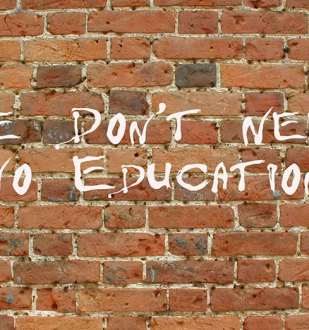 E DON'T NE
NO EDUCATION